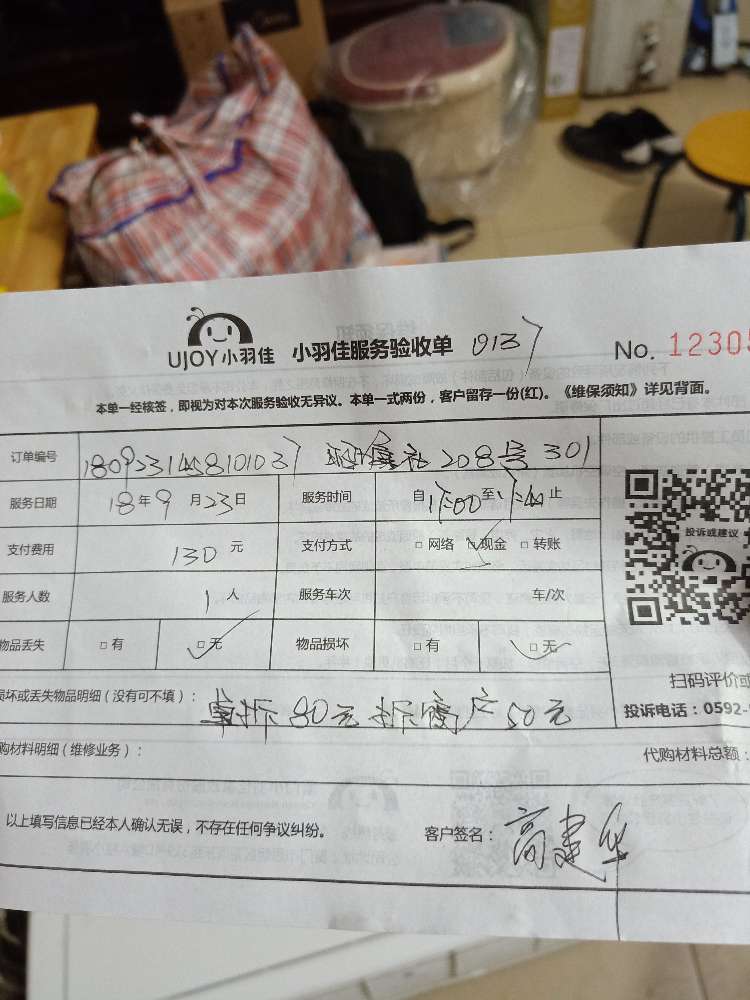 UJOY小羽佳 小羽佳服务验收单 0137 No. 12305
本单一经核签，即视为对本次服务验收无异议。本单一式两份，客户留存一份(红)。《维保须知》详见背面。
订单编号 208号 301
服务日期 18年9月23日 服务时间 自 至 止
支付费用 130元 支付方式 □ 网络 □ 现金 □ 转账
投诉或建议
服务人数 1人 服务车次 车/次
物品丢失 □ 有 □ 无 物品损坏 □ 有 □ 无
扫码评价或
损坏或丢失物品明细（没有可不填）： 80元 50元
投诉电话：0592-
购材料明细（维修业务）： 代购材料总额：
以上填写信息已经本人确认无误，不存在任何争议纠纷。 客户签名： 高建华